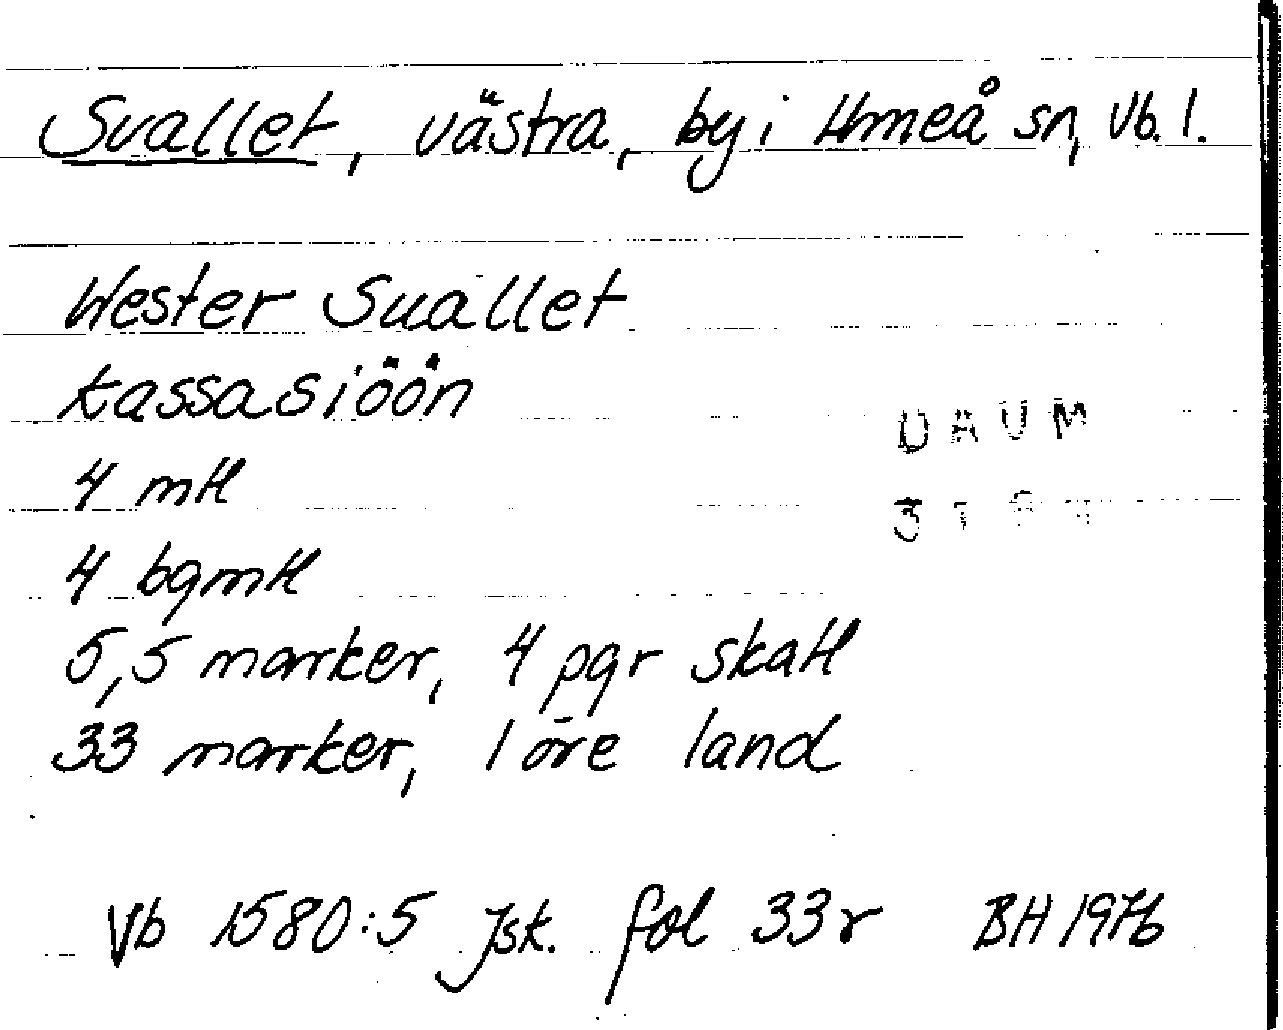 Svallet, västra, by i Umeå sn, Vb. l.
Wester Suallet
kassasiöön
4 mtl
4 bgmtl
5,5 marker, 4 pgr skatt
33 marker, 1 öre land
DAUM
Vb 1580:5 Jsk. fol 33r BH 1976